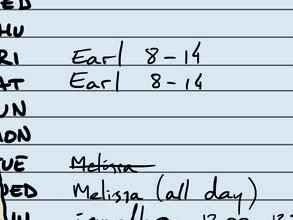 ED
HU
RI Earl 8-14
AT Earl 8-14
UN
ON
UE Melissa
ED Melissa (all day)
HU